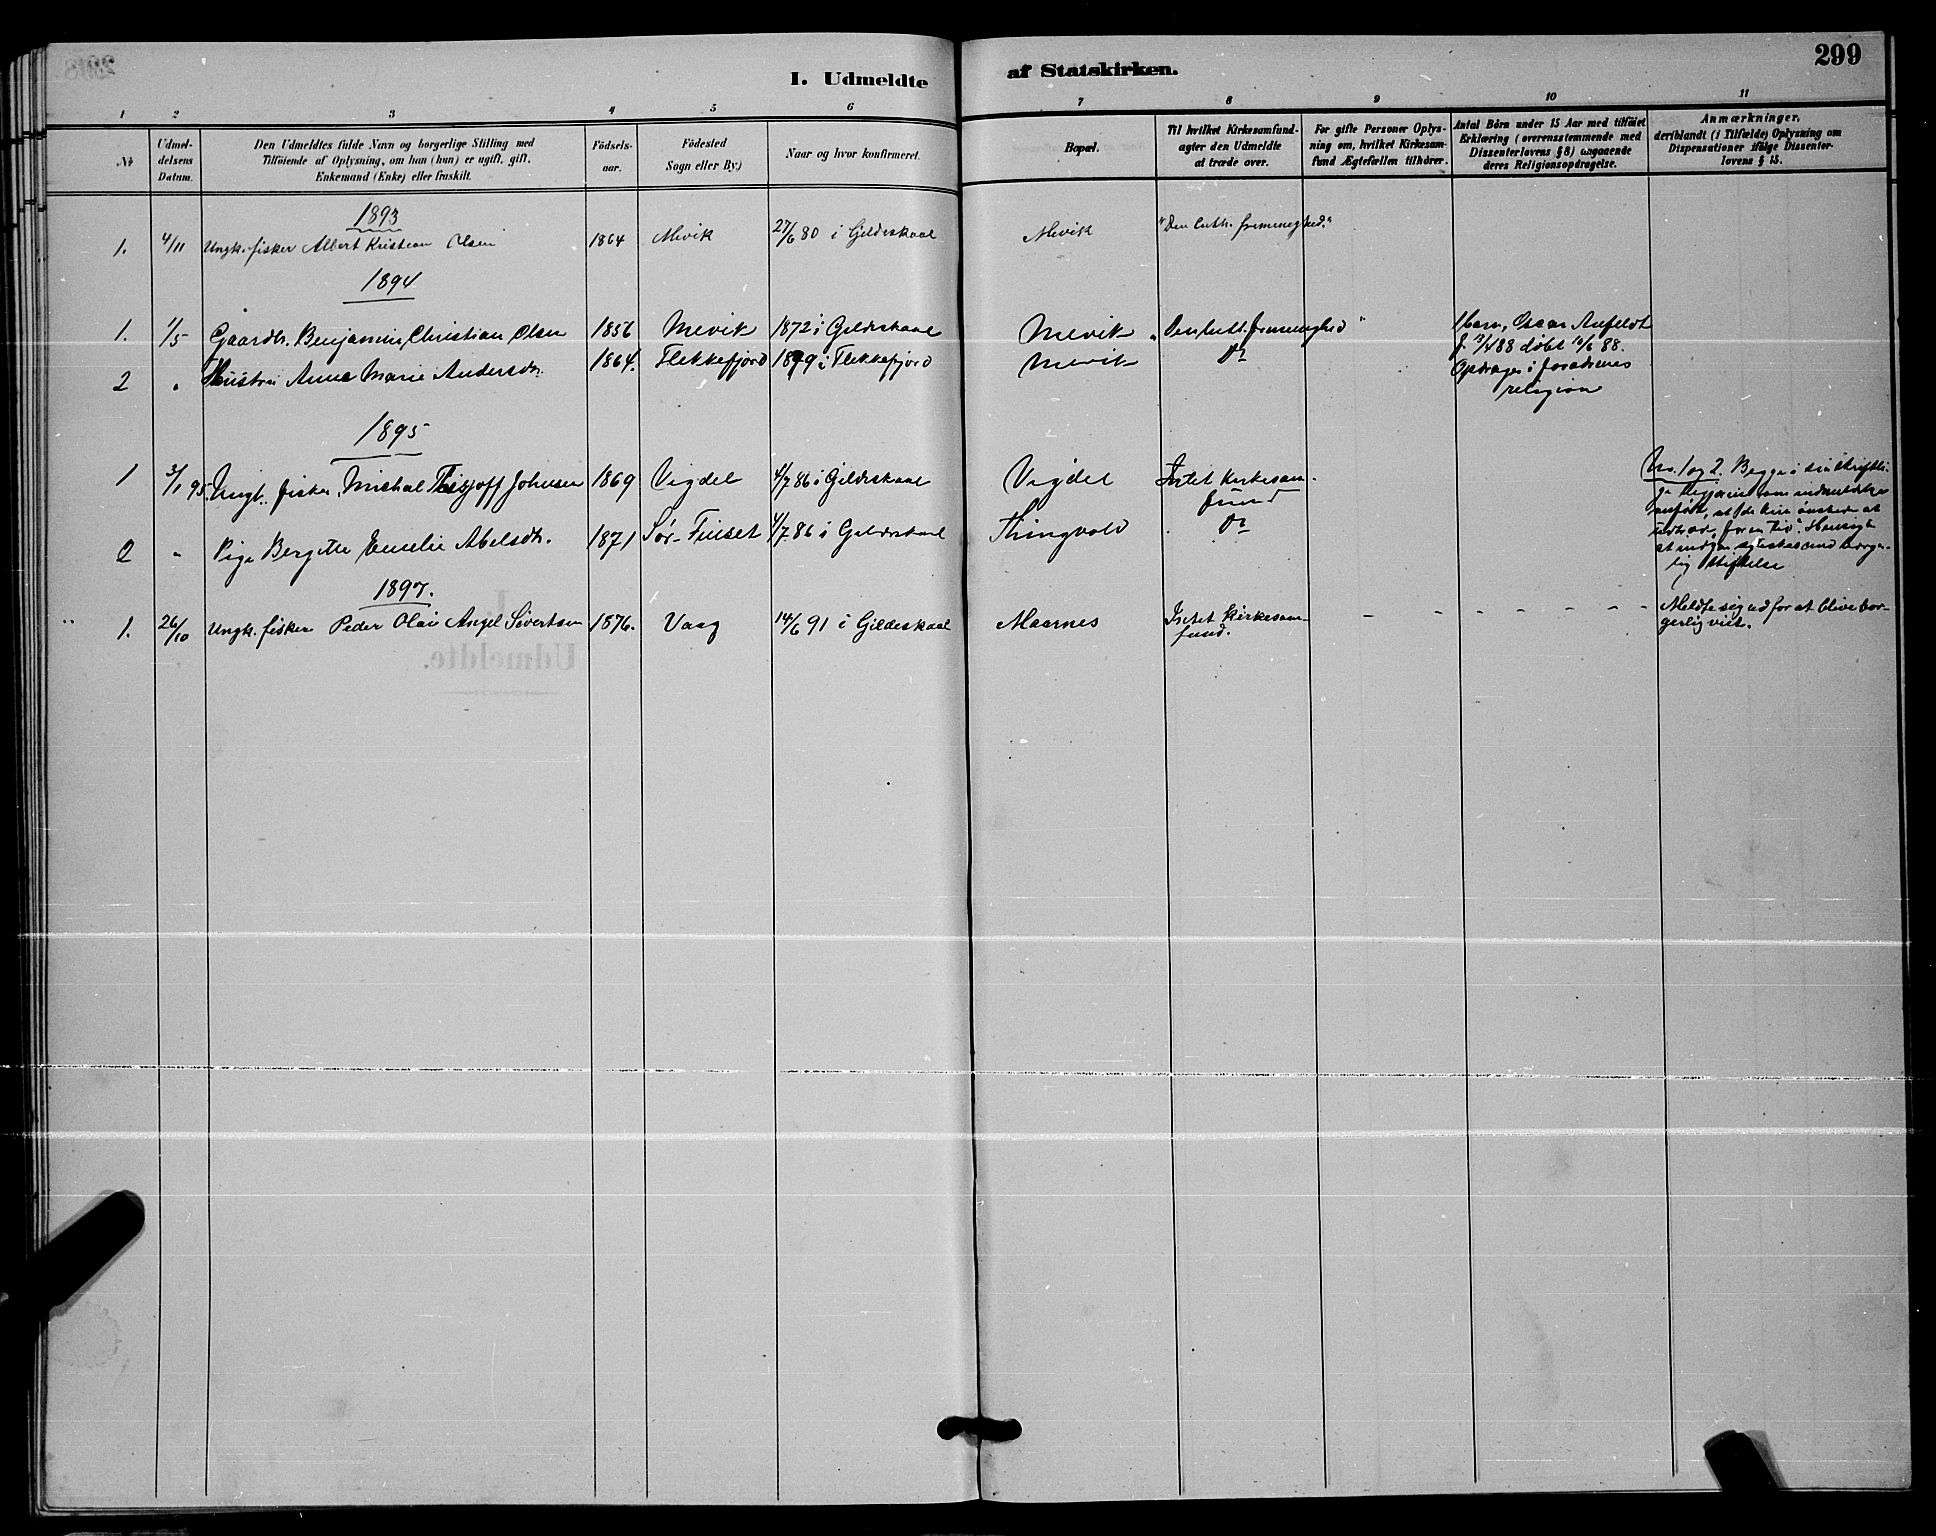 299
I. Udmeldte af Statskirken.
1 2 3 4 5 6 7 8 9 10 11
Nr
Udmel-
delsens
Datum.
Den Udmeldtes fulde Navn og borgerlige Stilling med
Tilføiende af Oplysning, om han (hun) er ugift, gift,
Enkemand (Enke) eller fraskilt.
Födsels-
aar.
Födested
Sogn eller By.)
Naar og hvor konfirmeret.
Bopæl.
Til hvilket Kirkesamfund
agter den Udmeldte
at træde over.
For gifte Personer Oplys-
ning om, hvilket Kirkesam-
fund Ægtefællen tilhörer.
Antal Börn under 15 Aar med tilföiet
Erklæring (overensstemmende med
Dissenterlovens § 8) angaaende
deres Religionsopdragelse.
Anmærkninger,
deriblandt (i Tilfælde) Oplysning om
Dispensationer ifølge Dissenter-
lovens § 15.
1893
1. 4/11 Ungk. fisker Albert Kristian Olsen 1864 Mevik 27/6 80 i Gildeskaal Mevik "Den luth. frimenighed."
1894
1. 1/5 Gaardbr. Benjamin Christian Olsen 1856 Mevik 1872 i Gildeskaal Mevik "Den luth. frimenighed"
1 barn, Oscar Anfeldt
f. 13/4 88 døbt 10/6 88.
Opdrages i forældrenes
religion
2 " Hustru Anne Marie Andersdr. 1864. Flekkefjord 1879 i Flekkefjord Mevik Do
1895
1 3/1 95. Ungk. fisker Michal Johnsen 1869 Vigdel 4/7 86 i Gildeskaal Vigdel Intet Kirkesam-
fund
2 " Pige Bergitte Emelie Abelsdr. 1871 Sør-Finset 4/7 86 i Gildeskaal Thingvold Do
No. 1 og 2. Begge i sin skriftli-
ge
anført, at de kun ønskede at
udtræde "for en Tid". Hensigt
at indgaa egteskab med borger-
lig Stiftelse
1897.
1. 26/10 Ungk. fisker Peder Olai Angel Sivertsen 1876. Vaag 14/6 91 i Gildeskaal Maarnes Intet Kirkesam-
fund. - - - - - - -
Meldte sig ud for at blive bor-
gerlig viet.